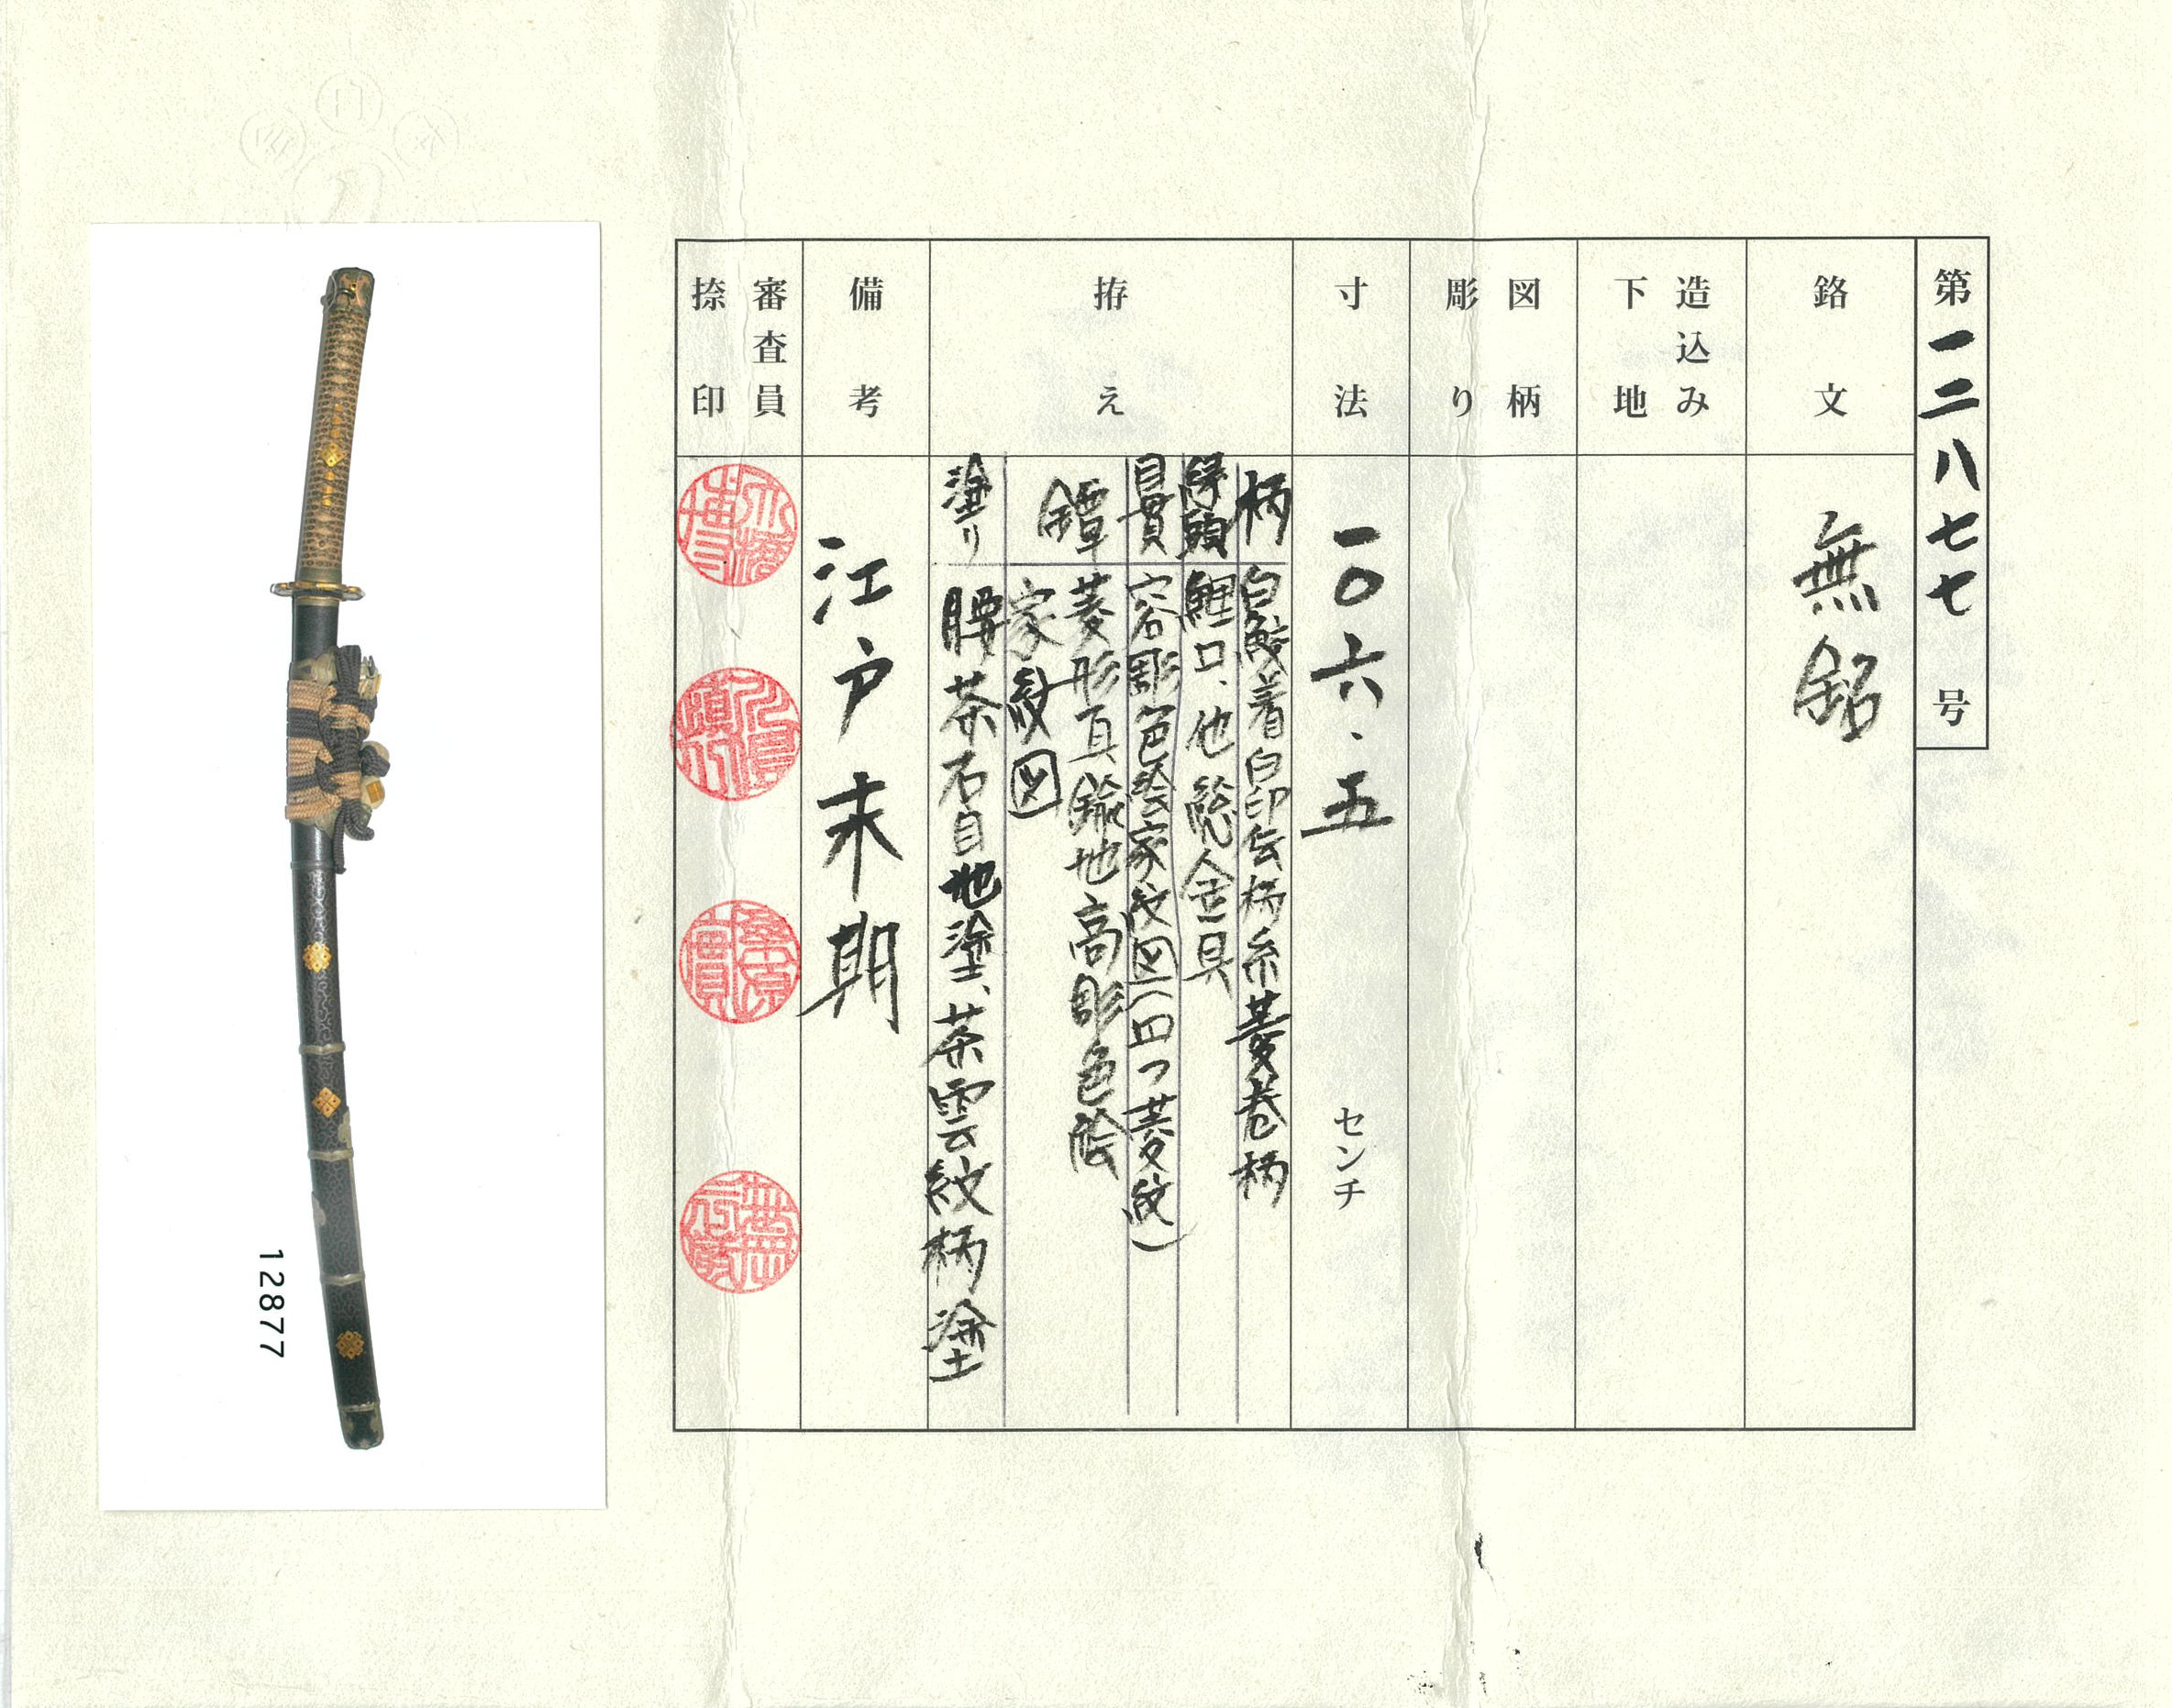 第一二八七七号
銘文
無銘
造込み
下地
図柄
彫り
寸法
一〇六・五
センチ
拵え
柄
白鮫着白印伝柄糸菱巻柄
縁頭
鯉口、他総金具
目貫
容彫色絵家紋図(四つ菱紋)
鐔
菱形真鍮地高彫色絵
家紋図
塗り
腰茶石目地塗、茶雲紋柄塗
備考
江戸末期
審査員
捺印
12877